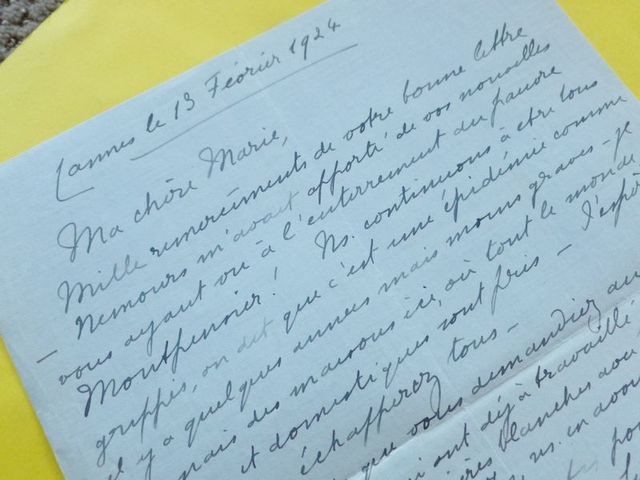 Cannes le 13 Février 1924
Ma chère Marie,
Mille remerciments de votre bonne lettre
- Nemours m'avait apporté de vos nouvelles
vous ayant vu à l'enterrement du pauvre
Montpensier! Ns. continuons à être tous
grippés, on dit que c'est une épidémie comme
il y a quelques années mais moins graves - je
connais des maisons ici, où tout le monde
et domestiques sont pris - J'espère
échapperez tous -
que vous demandiez au
qui ont déjà travaillé
blanches